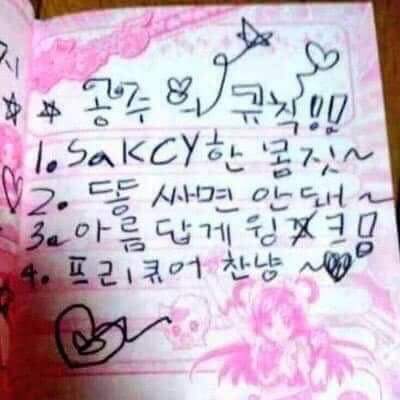 ☆ 공주의 규칙!!
1. SaKCY한 몸짓~
2. 똥 싸면 안돼~
3. 아름답게 윙크!
4. 프리큐어 찬냥~♥